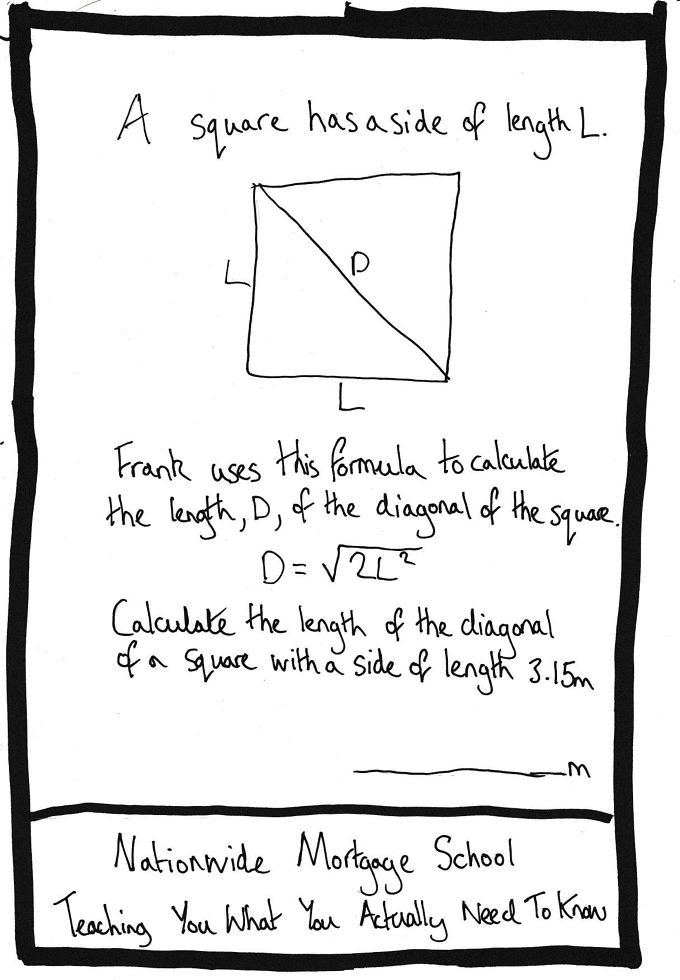 A square has a side of length L.
D
L
L
Frank uses this formula to calculate
the length, D, of the diagonal of the square.
D = √2L²
Calculate the length of the diagonal
of a square with a side of length 3.15m
________m
Nationwide Mortgage School
Teaching You What You Actually Need To Know